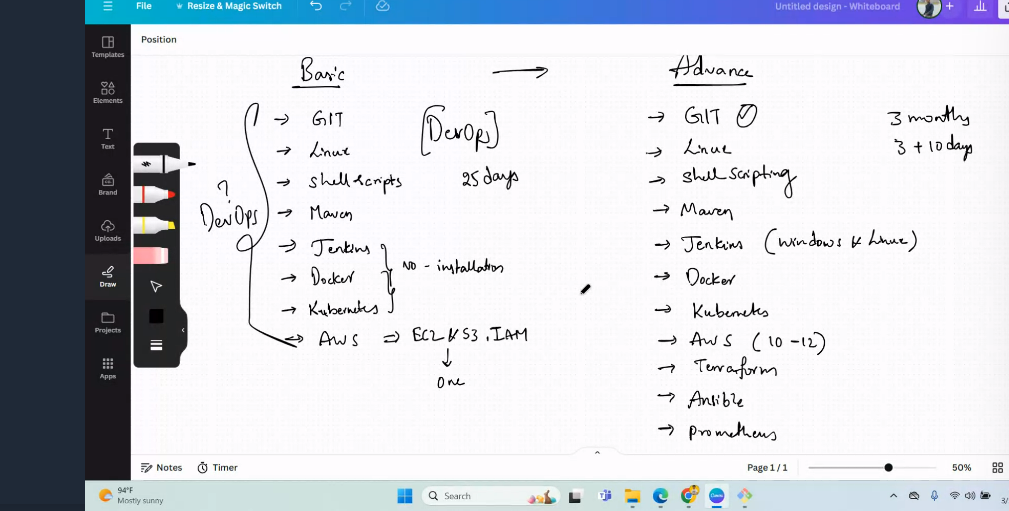 File
Resize & Magic Switch
Untitled design - Whiteboard
Position
Templates
Elements
Text
Brand
Uploads
Draw
Projects
Apps
Basic
→ GIT
→ Linux
→ Shell scripts
→ Maven
→ Jenkins
→ Docker
→ Kubernetes
→ AWS ⇒ EC2 & S3, IAM
↓
One
[DevOps]
25 days
NO - installation
?
DevOps
→
Advance
→ GIT
→ Linux
→ Shell Scripting
→ Maven
→ Jenkins (Windows & Linux)
→ Docker
→ Kubernetes
→ AWS (10 - 12)
→ Terraform
→ Ansible
→ Prometheus
3 months
3 + 10 days
Notes
Timer
Page 1 / 1
50%
94°F
Mostly sunny
Search